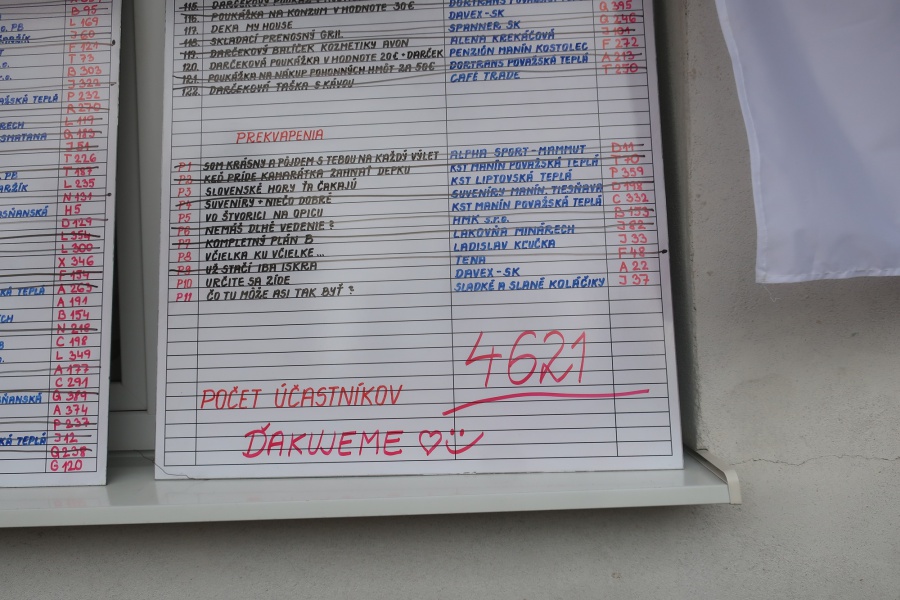 B 95
L 169
J 60
F 121
T 73
B 303
J 322
AŽSKÁ TEPLÁ P 232
R 270
L 119
SMATANA Q 183
J 51
T 226
T 187
L 235
N 131
SŇANSKÁ H5
D 129
L 354
L 300
X 346
F 154
KÁ TEPLÁ A 263
A 191
B 154
N 218
C 198
L 349
A 177
C 291
SŇANSKÁ G 389
A 374
P 237
KÁ TEPLÁ J 12
Q 238
G 120
115. DARČEKOVÝ
116. POUKÁŽKA NA KONZUM V HODNOTE 30€ DAVEX-SK Q 395
117. DEKA MY HOUSE SPANNER SK Q 246
118. SKLADACÍ PRENOSNÝ GRIL ALENA KREKÁČOVÁ
119. DARČEKOVÝ BALÍČEK KOZMETIKY AVON PENZIÓN MANÍN KOSTOLEC F 272
120. DARČEKOVÁ POUKÁŽKA V HODNOTE 20€ + DARČEK DORTRANS POVAŽSKÁ TEPLÁ A 213
121. POUKÁŽKA NA NÁKUP POHONNÝCH HMÔT ZA 50€ CAFE TRADE T 250
122. DARČEKOVÁ TAŠKA S KÁVOU
PREKVAPENIA
P1 SOM KRÁSNY A PÔJDEM S TEBOU NA KAŽDÝ VÝLET ALPHA SPORT-MAMMUT D 11
P2 KEĎ PRÍDE KAMARÁTKA ZAHNAŤ DEPKU KST MANÍN POVAŽSKÁ TEPLÁ T 70
P3 SLOVENSKÉ HORY ŤA ČAKAJÚ KST LIPTOVSKÁ TEPLÁ P 359
P4 SUVENÍRY + NIEČO DOBRÉ SUVENÍRY MANÍN TIESŇAVA D 198
P5 VO ŠTVORICI NA OPICU KST MANÍN POVAŽSKÁ TEPLÁ C 332
P6 NEMÁŠ DLHÉ VEDENIE? HMK s.r.o. B 153
P7 KOMPLETNÝ PLÁN B LAKOVŇA MINÁRECH J 82
P8 VČIELKA KU VČIELKE... LADISLAV KĽUČKA J 33
P9 UŽ STAČÍ IBA ISKRA TENA F 48
P10 URČITE SA ZÍDE DAVEX-SK A 22
P11 ČO TU MÔŽE ASI TAK BYŤ? SLADKÉ A SLANÉ KOLÁČIKY J 37
POČET ÚČASTNÍKOV 4621
ĎAKUJEME